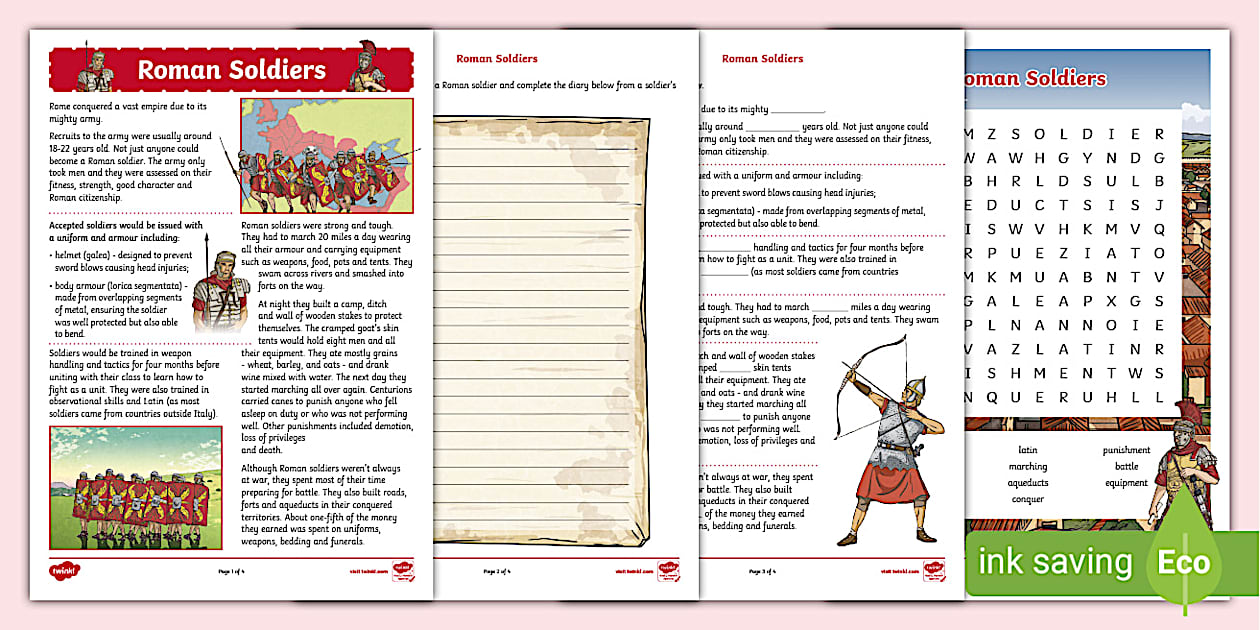 Roman Soldiers
Rome conquered a vast empire due to its
mighty army.
Recruits to the army were usually around
18-22 years old. Not just anyone could
become a Roman soldier. The army only
took men and they were assessed on their
fitness, strength, good character and
Roman citizenship.
Accepted soldiers would be issued with
a uniform and armour including:
• helmet (galea) - designed to prevent
sword blows causing head injuries;
• body armour (lorica segmentata) -
made from overlapping segments
of metal, ensuring the soldier
was well protected but also able
to bend.
Soldiers would be trained in weapon
handling and tactics for four months before
uniting with their class to learn how to
fight as a unit. They were also trained in
observational skills and Latin (as most
soldiers came from countries outside Italy).
Roman soldiers were strong and tough.
They had to march 20 miles a day wearing
all their armour and carrying equipment
such as weapons, food, pots and tents. They
swam across rivers and smashed into
forts on the way.
At night they built a camp, ditch
and wall of wooden stakes to protect
themselves. The cramped goat's skin
tents would hold eight men and all
their equipment. They ate mostly grains
- wheat, barley, and oats - and drank
wine mixed with water. The next day they
started marching all over again. Centurions
carried canes to punish anyone who fell
asleep on duty or who was not performing
well. Other punishments included demotion,
loss of privileges
and death.
Although Roman soldiers weren't always
at war, they spent most of their time
preparing for battle. They also built roads,
forts and aqueducts in their conquered
territories. About one-fifth of the money
they earned was spent on uniforms,
weapons, bedding and funerals.
twinkl
Page 1 of 4
visit twinkl.com
Roman Soldiers
a Roman soldier and complete the diary below from a soldier's
Page 2 of 4
visit twinkl.com
Roman Soldiers
due to its mighty ____________.
ally around ____________ years old. Not just anyone could
army only took men and they were assessed on their fitness,
Roman citizenship.
ued with a uniform and armour including:
to prevent sword blows causing head injuries;
ca segmentata) - made from overlapping segments of metal,
protected but also able to bend.
____________ handling and tactics for four months before
n how to fight as a unit. They were also trained in
____________ (as most soldiers came from countries
d tough. They had to march ________ miles a day wearing
equipment such as weapons, food, pots and tents. They swam
forts on the way.
ch and wall of wooden stakes
mped _______ skin tents
ll their equipment. They ate
and oats - and drank wine
y they started marching all
____________ to punish anyone
was not performing well.
emotion, loss of privileges and
n't always at war, they spent
r battle. They also built
aqueducts in their conquered
of the money they earned
ns, bedding and funerals.
Page 3 of 4
visit twinkl.com
oman Soldiers
M Z S O L D I E R
W A W H G Y N D G
B H R L D S U L B
E D U C T S I S J
I S W V H K M V Q
R P U E Z I A T O
M K M U A B N T V
G A L E A P X G S
P L N A N N O I E
V A Z L A T I N R
I S H M E N T W S
N Q U E R U H L L
latin
marching
aqueducts
conquer
punishment
battle
equipment
ink saving
Eco